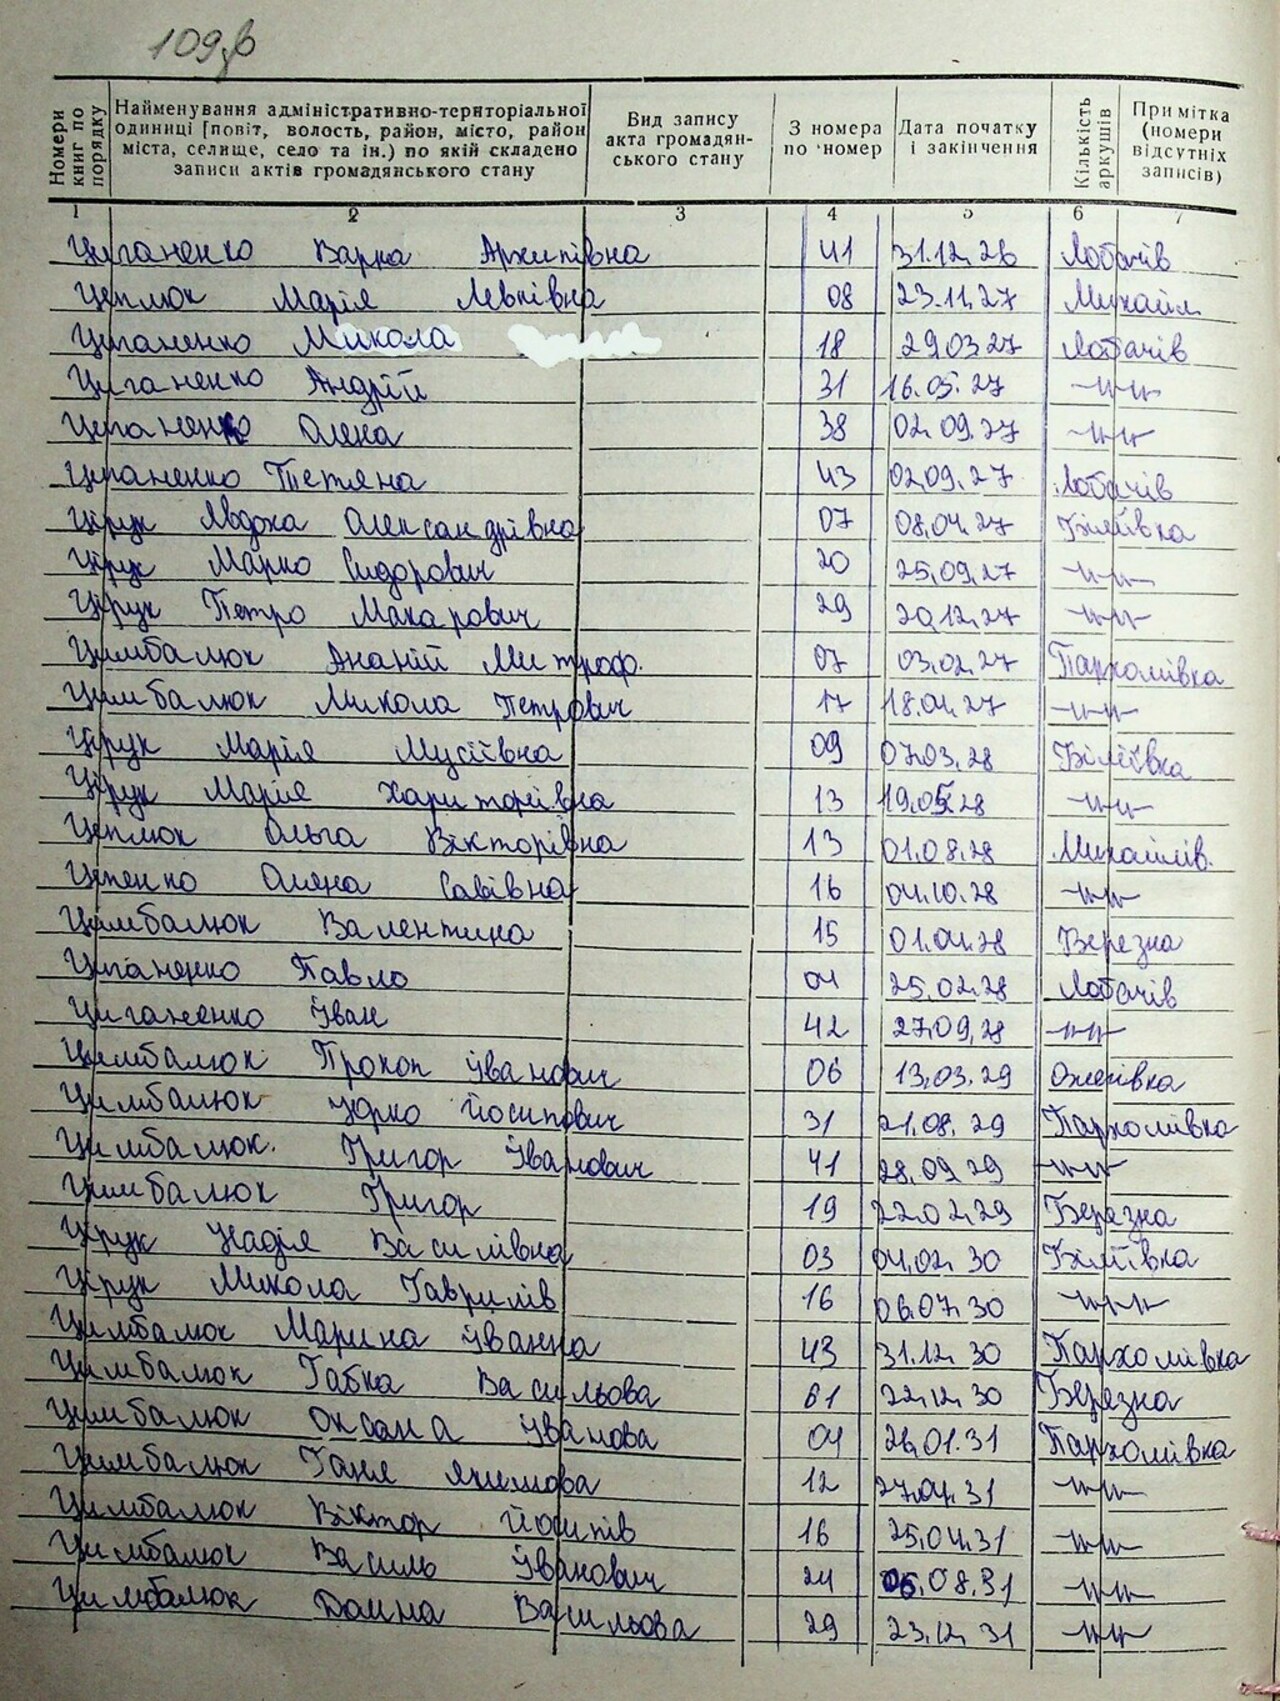 109зв
Номери книг по порядку
Найменування адміністративно-територіальної одиниці [повіт, волость, район, місто, район міста, селище, село та ін.) по якій складено записи актів громадянського стану
Вид запису акта громадян-ського стану
З номера по номер
Дата початку і закінчення
Кількість аркушів
Примітка (номери відсутніх записів)
1 2 3 4 5 6 7
Циганенко Варка Архипівна 41 31.12.26 Лобачів
Цеплюк Марія Левківна 08 23.11.27 Михайл.
Циганенко Микола 18 29.03.27 Лобачів
Циганенко Андрій 31 16.05.27 -"-"-
Циганенко Олена 38 02.09.27 -"-"-
Циганенко Тетяна 43 02.09.27 Лобачів
Цірук Явдоха Олександрівна 07 08.04.27 Біліївка
Цірук Марко Сидорович 20 25.09.27 -"-"-
Цірук Петро Макарович 29 20.12.27 -"-"-
Цимбалюк Ананій Митроф. 07 03.02.27 Пархомівка
Цимбалюк Микола Петрович 17 18.04.27 -"-"-
Цірук Марія Мусіївна 09 07.03.28 Біліївка
Цірук Марія Харитонівна 13 19.05.28 -"-"-
Цеплюк Ольга Вікторівна 13 01.08.28 Михайлів.
Олена Савівна 16 04.10.28 -"-"-
Цимбалюк Валентина 15 01.04.28 Березна
Циганенко Павло 04 25.02.28 Лобачів
Циганенко Іван 42 27.09.28 -"-"-
Цимбалюк Прокоп Іванович 06 13.03.29 Ожегівка
Цимбалюк Юрко Йосипович 31 21.08.29 Пархомівка
Цимбалюк. Григор Іванович 41 28.09.29 -"-"-
Цимбалюк Григор 19 22.02.29 Березна
Цірук Надія Василівна 03 04.02.30 Біліївка
Цірук Микола Гаврилів 16 06.07.30 -"-"-
Цимбалюк Марина Іванна 43 31.12.30 Пархомівка
Цимбалюк Габка Васильова 61 22.12.30 Березна
Цимбалюк Оксана Іванова 04 26.01.31 Пархомівка
Цимбалюк Ганя Якимова 12 27.04.31 -"-"-
Цимбалюк Віктор Йосипів 16 25.04.31 -"-"-
Цимбалюк Василь Іванович 24 05.08.31 -"-"-
Цимбалюк Домна Васильова 29 23.12.31 -"-"-